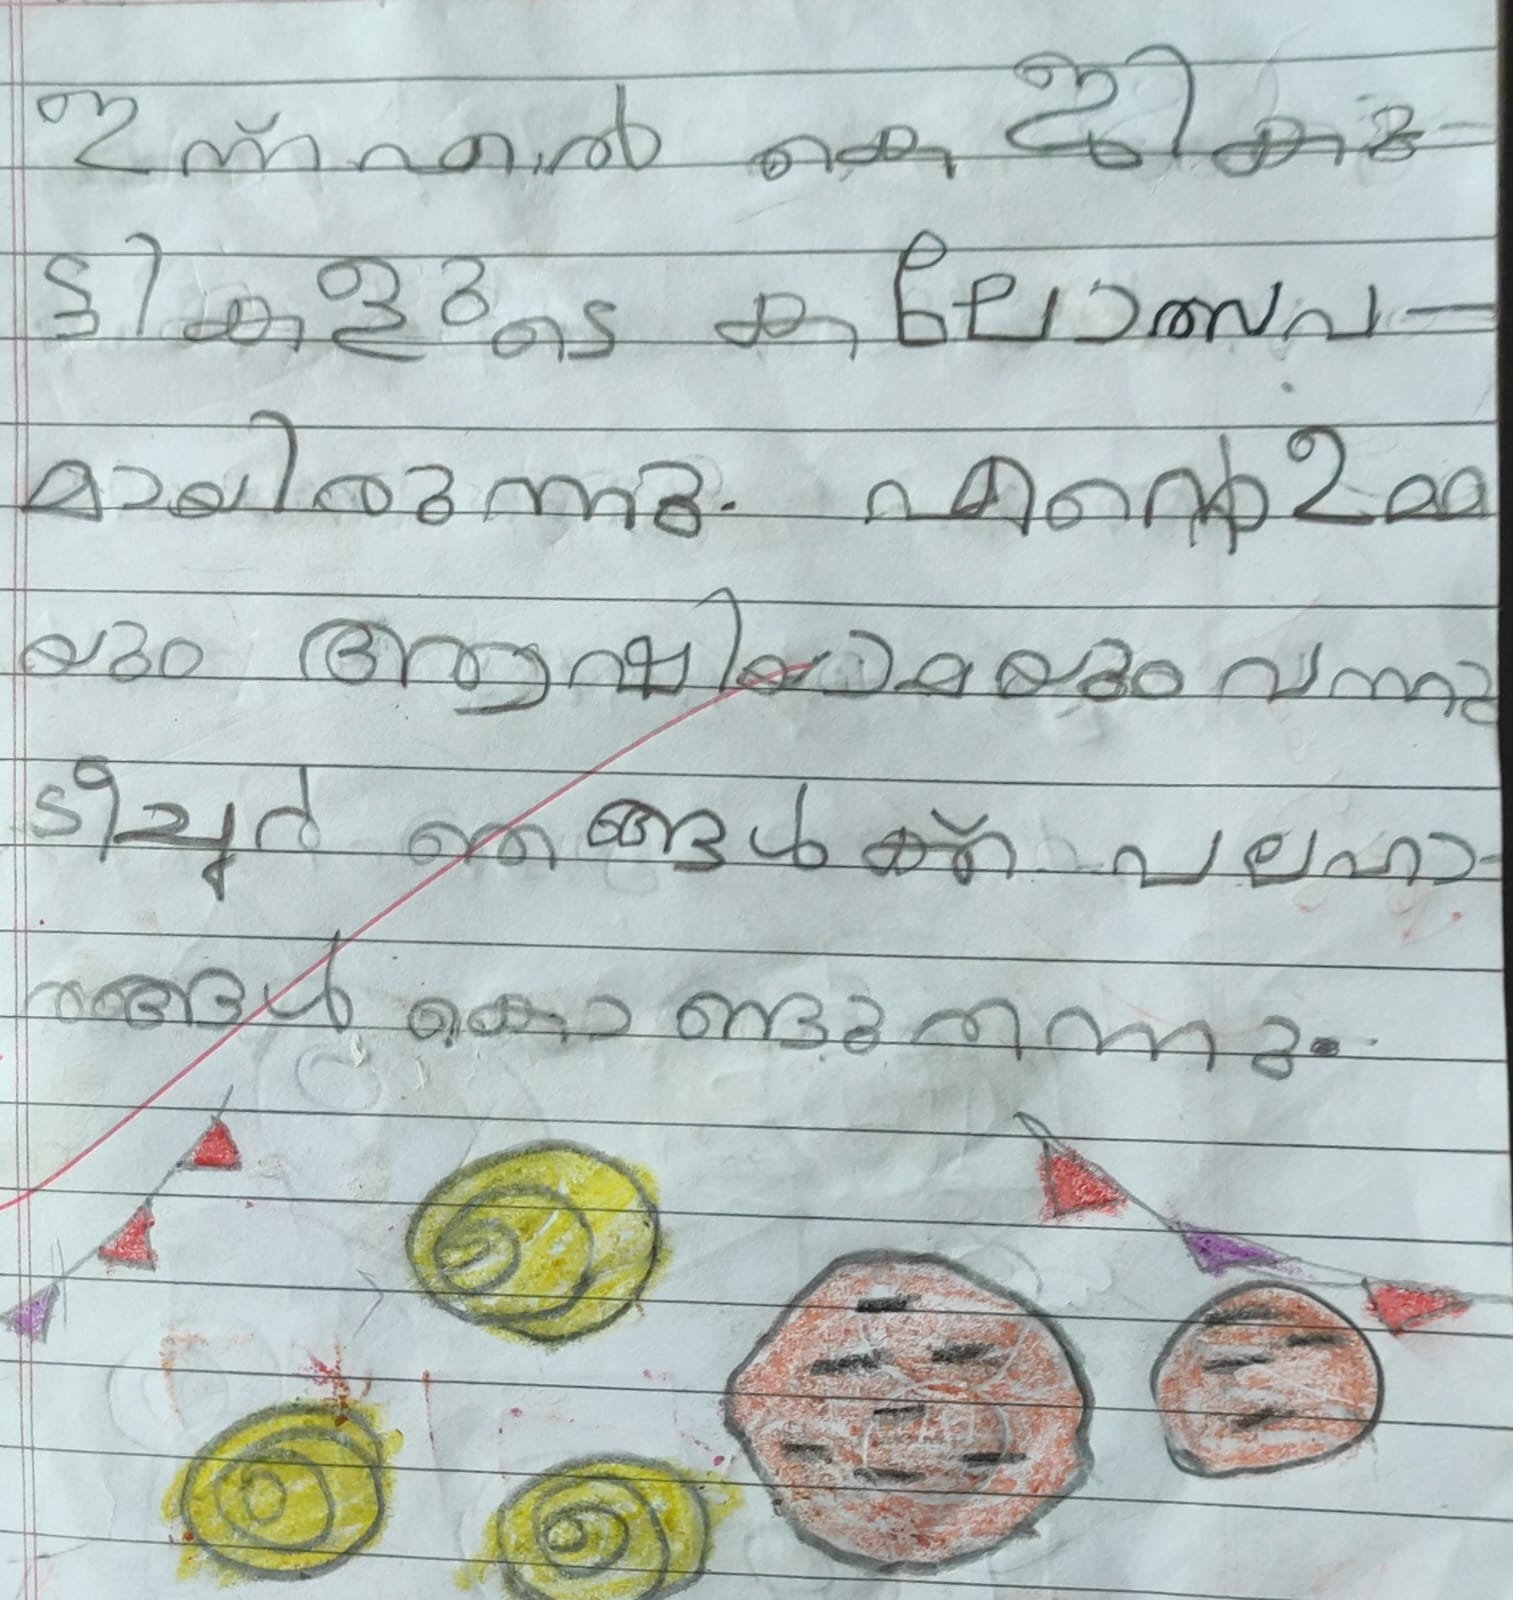 ഇന്ന് എൻ കെ ജി കു-
ട്ടികളുടെ കലോത്സവ-
മായിരുന്നു. എന്റെ ഉമ്മ
യും ആഷിയാമയും വന്നു
ടീച്ചർ ഞങ്ങൾക്ക് പലഹാ-
രങ്ങൾ കൊണ്ടുതന്നു.